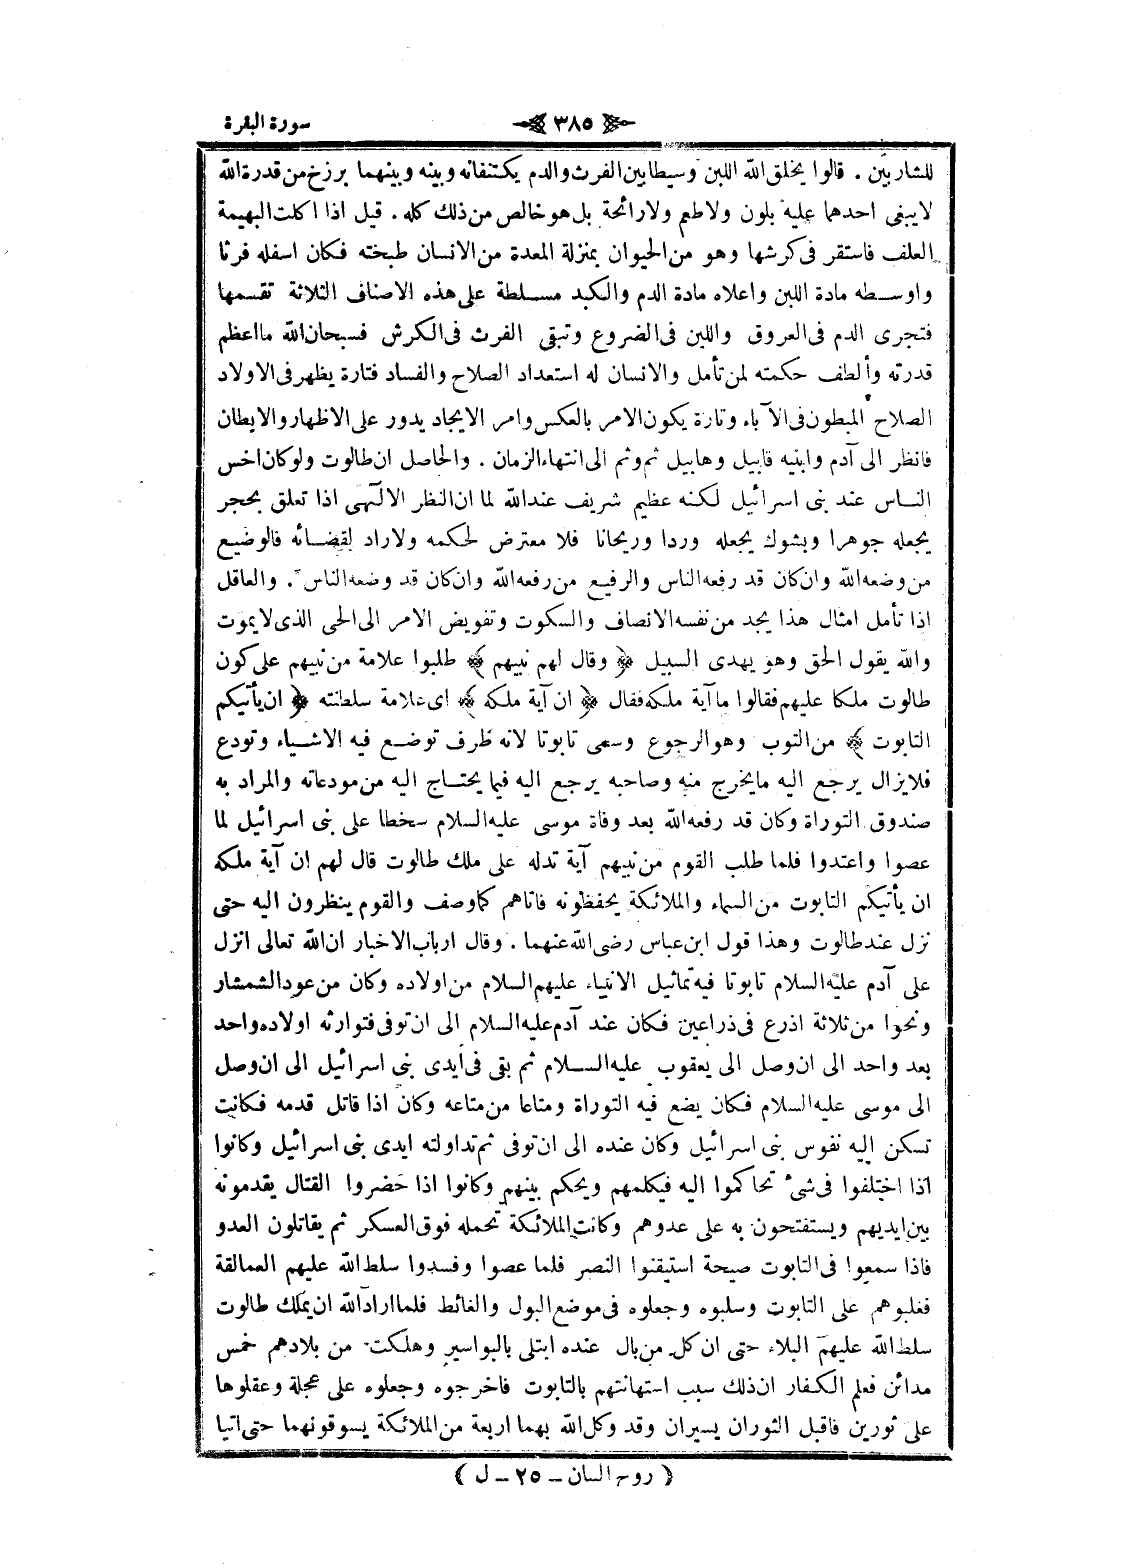 سورة البقرة
٣٨٥
للشاربين . قالوا يخلق الله اللبن وسيطا بين الفرث والدم يكتنفانه وبينه وبينهما برزخ من قدرة الله
لا يبغى احدهما عليه بلون ولا طعم ولا رائحة بل هو خالص من ذلك كله . قيل اذا اكلت البهيمة
العلف فاستقر فى كرشها وهو من الحيوان بمنزلة المعدة من الانسان طبخته فكان اسفله فرثا
واوسطه مادة اللبن واعلاه مادة الدم والكبد مسلطة على هذه الاصناف الثلاثة تقسمها
فتجرى الدم فى العروق واللبن فى الضروع وتبقى الفرث فى الكرش فسبحان الله ما اعظم
قدرته وألطف حكمته لمن تأمل والانسان له استعداد الصلاح والفساد فتارة يظهر فى الاولاد
الصلاح المبطون فى الآباء وتارة يكون الامر بالعكس وامر الايجاد يدور على الاظهار والابطان
فانظر الى آدم وابنيه قابيل وهابيل ثم وثم الى انتهاء الزمان . والحاصل ان طالوت ولو كان اخس
الناس عند بنى اسرائيل لكنه عظيم شريف عند الله لما ان النظر الالهى اذا تعلق بحجر
يجعله جوهرا وبشوك يجعله وردا وريحانا فلا معترض لحكمه ولا راد لقضائه فالوضيع
من وضعه الله وان كان قد رفعه الناس والرفيع من رفعه الله وان كان قد وضعه الناس . والعاقل
اذا تأمل امثال هذا يجد من نفسه الانصاف والسكوت وتفويض الامر الى الحى الذى لا يموت
والله يقول الحق وهو يهدى السبيل ﴿ وقال لهم نبيهم ﴾ طلبوا علامة من نبيهم على كون
طالوت ملكا عليهم فقالوا ما آية ملكه فقال ﴿ ان آية ملكه ﴾ اى علامة سلطنته ﴿ ان يأتيكم
التابوت ﴾ من التوب وهو الرجوع وسمى تابوتا لانه ظرف توضع فيه الاشياء وتودع
فلا يزال يرجع اليه ما يخرج منه وصاحبه يرجع اليه فيما يحتاج اليه من مودعاته والمراد به
صندوق التوراة وكان قد رفعه الله بعد وفاة موسى عليه السلام سخطا على بنى اسرائيل لما
عصوا واعتدوا فلما طلب القوم من نبيهم آية تدله على ملك طالوت قال لهم ان آية ملكه
ان يأتيكم التابوت من السماء والملائكة يحفظونه فاتاهم كما وصف والقوم ينظرون اليه حتى
نزل عند طالوت وهذا قول ابن عباس رضى الله عنهما . وقال ارباب الاخبار ان الله تعالى انزل
على آدم عليه السلام تابوتا فيه تماثيل الانبياء عليهم السلام من اولاده وكان من عود الشمشار
ونحوا من ثلاثة اذرع فى ذراعين فكان عند آدم عليه السلام الى ان توفى فتوارثه اولاده واحد
بعد واحد الى ان وصل الى يعقوب عليه السلام ثم بقى فى أيدى بنى اسرائيل الى ان وصل
الى موسى عليه السلام فكان يضع فيه التوراة ومتاعا من متاعه وكان اذا قاتل قدمه فكانت
تسكن اليه نفوس بنى اسرائيل وكان عنده الى ان توفى ثم تداولته ايدى بنى اسرائيل وكانوا
اذا اختلفوا فى شئ تحاكموا اليه فيكلمهم ويحكم بينهم وكانوا اذا حضروا القتال يقدمونه
بين ايديهم ويستفتحون به على عدوهم وكانت الملائكة تحمله فوق العسكر ثم يقاتلون العدو
فاذا سمعوا فى التابوت صيحة استيقنوا النصر فلما عصوا وفسدوا سلط الله عليهم العمالقة
فغلبوهم على التابوت وسلبوه وجعلوه فى موضع البول والغائط فلما اراد الله ان يملك طالوت
سلط الله عليهم البلاء حتى ان كل من بال عنده ابتلى بالبواسير وهلكت من بلادهم خمس
مدائن فعلم الكفار ان ذلك سبب استهانتهم بالتابوت فاخرجوه وجعلوه على عجلة وعقلوها
على ثورين فاقبل الثوران يسيران وقد وكل الله بهما اربعة من الملائكة يسوقونهما حتى اتيا
( روح البيان – ٢٥ – ل )